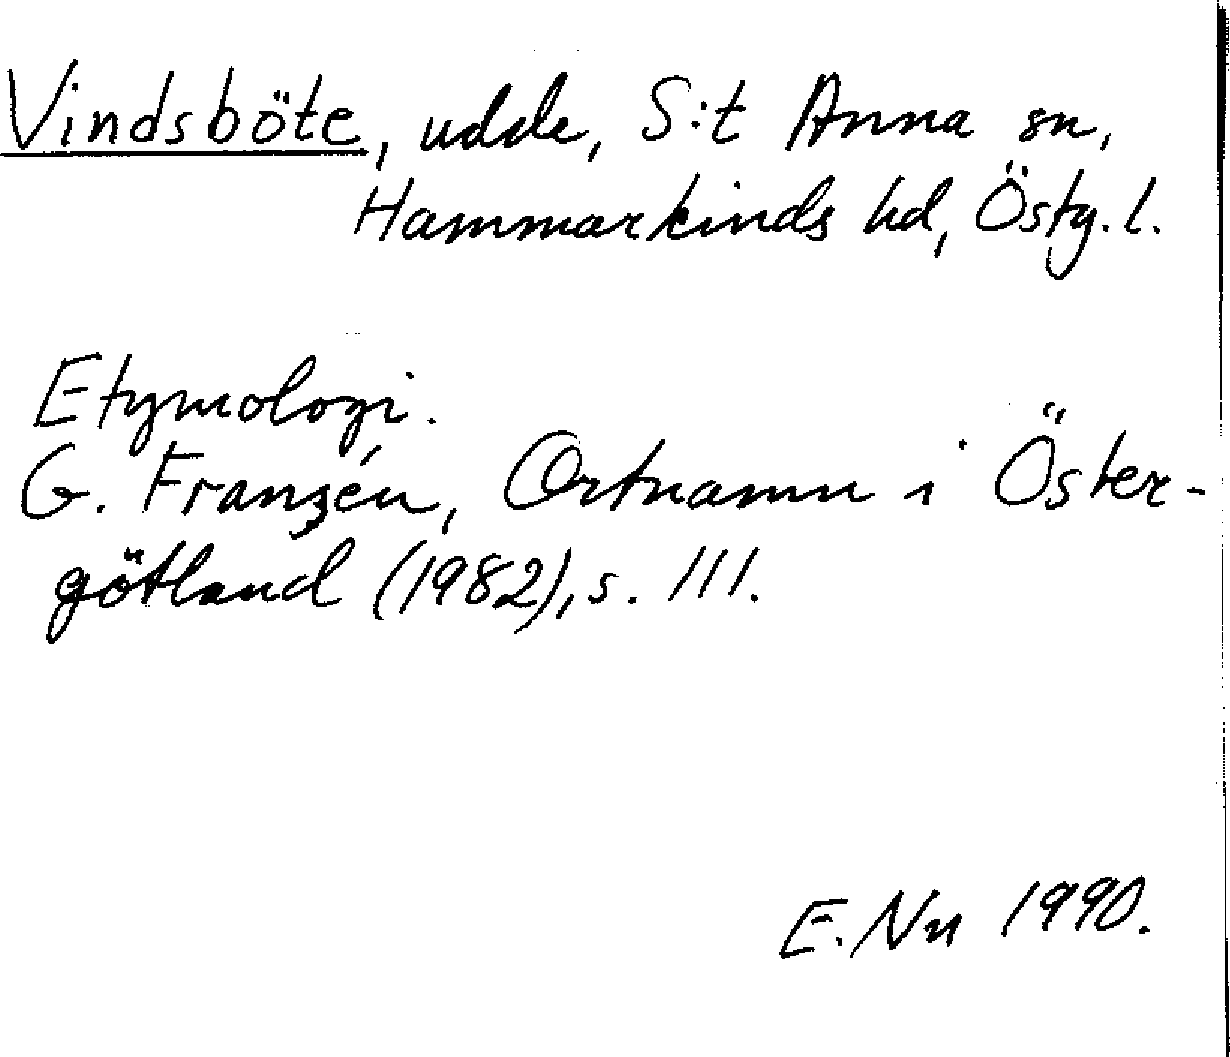 Vindsböte, udde, S:t Anna sn,
Hammarkinds hd, Östg. l.
Etymologi.
G. Franzén, Ortnamn i Öster-
götland (1982), s. 111.
E. Nn 1990.